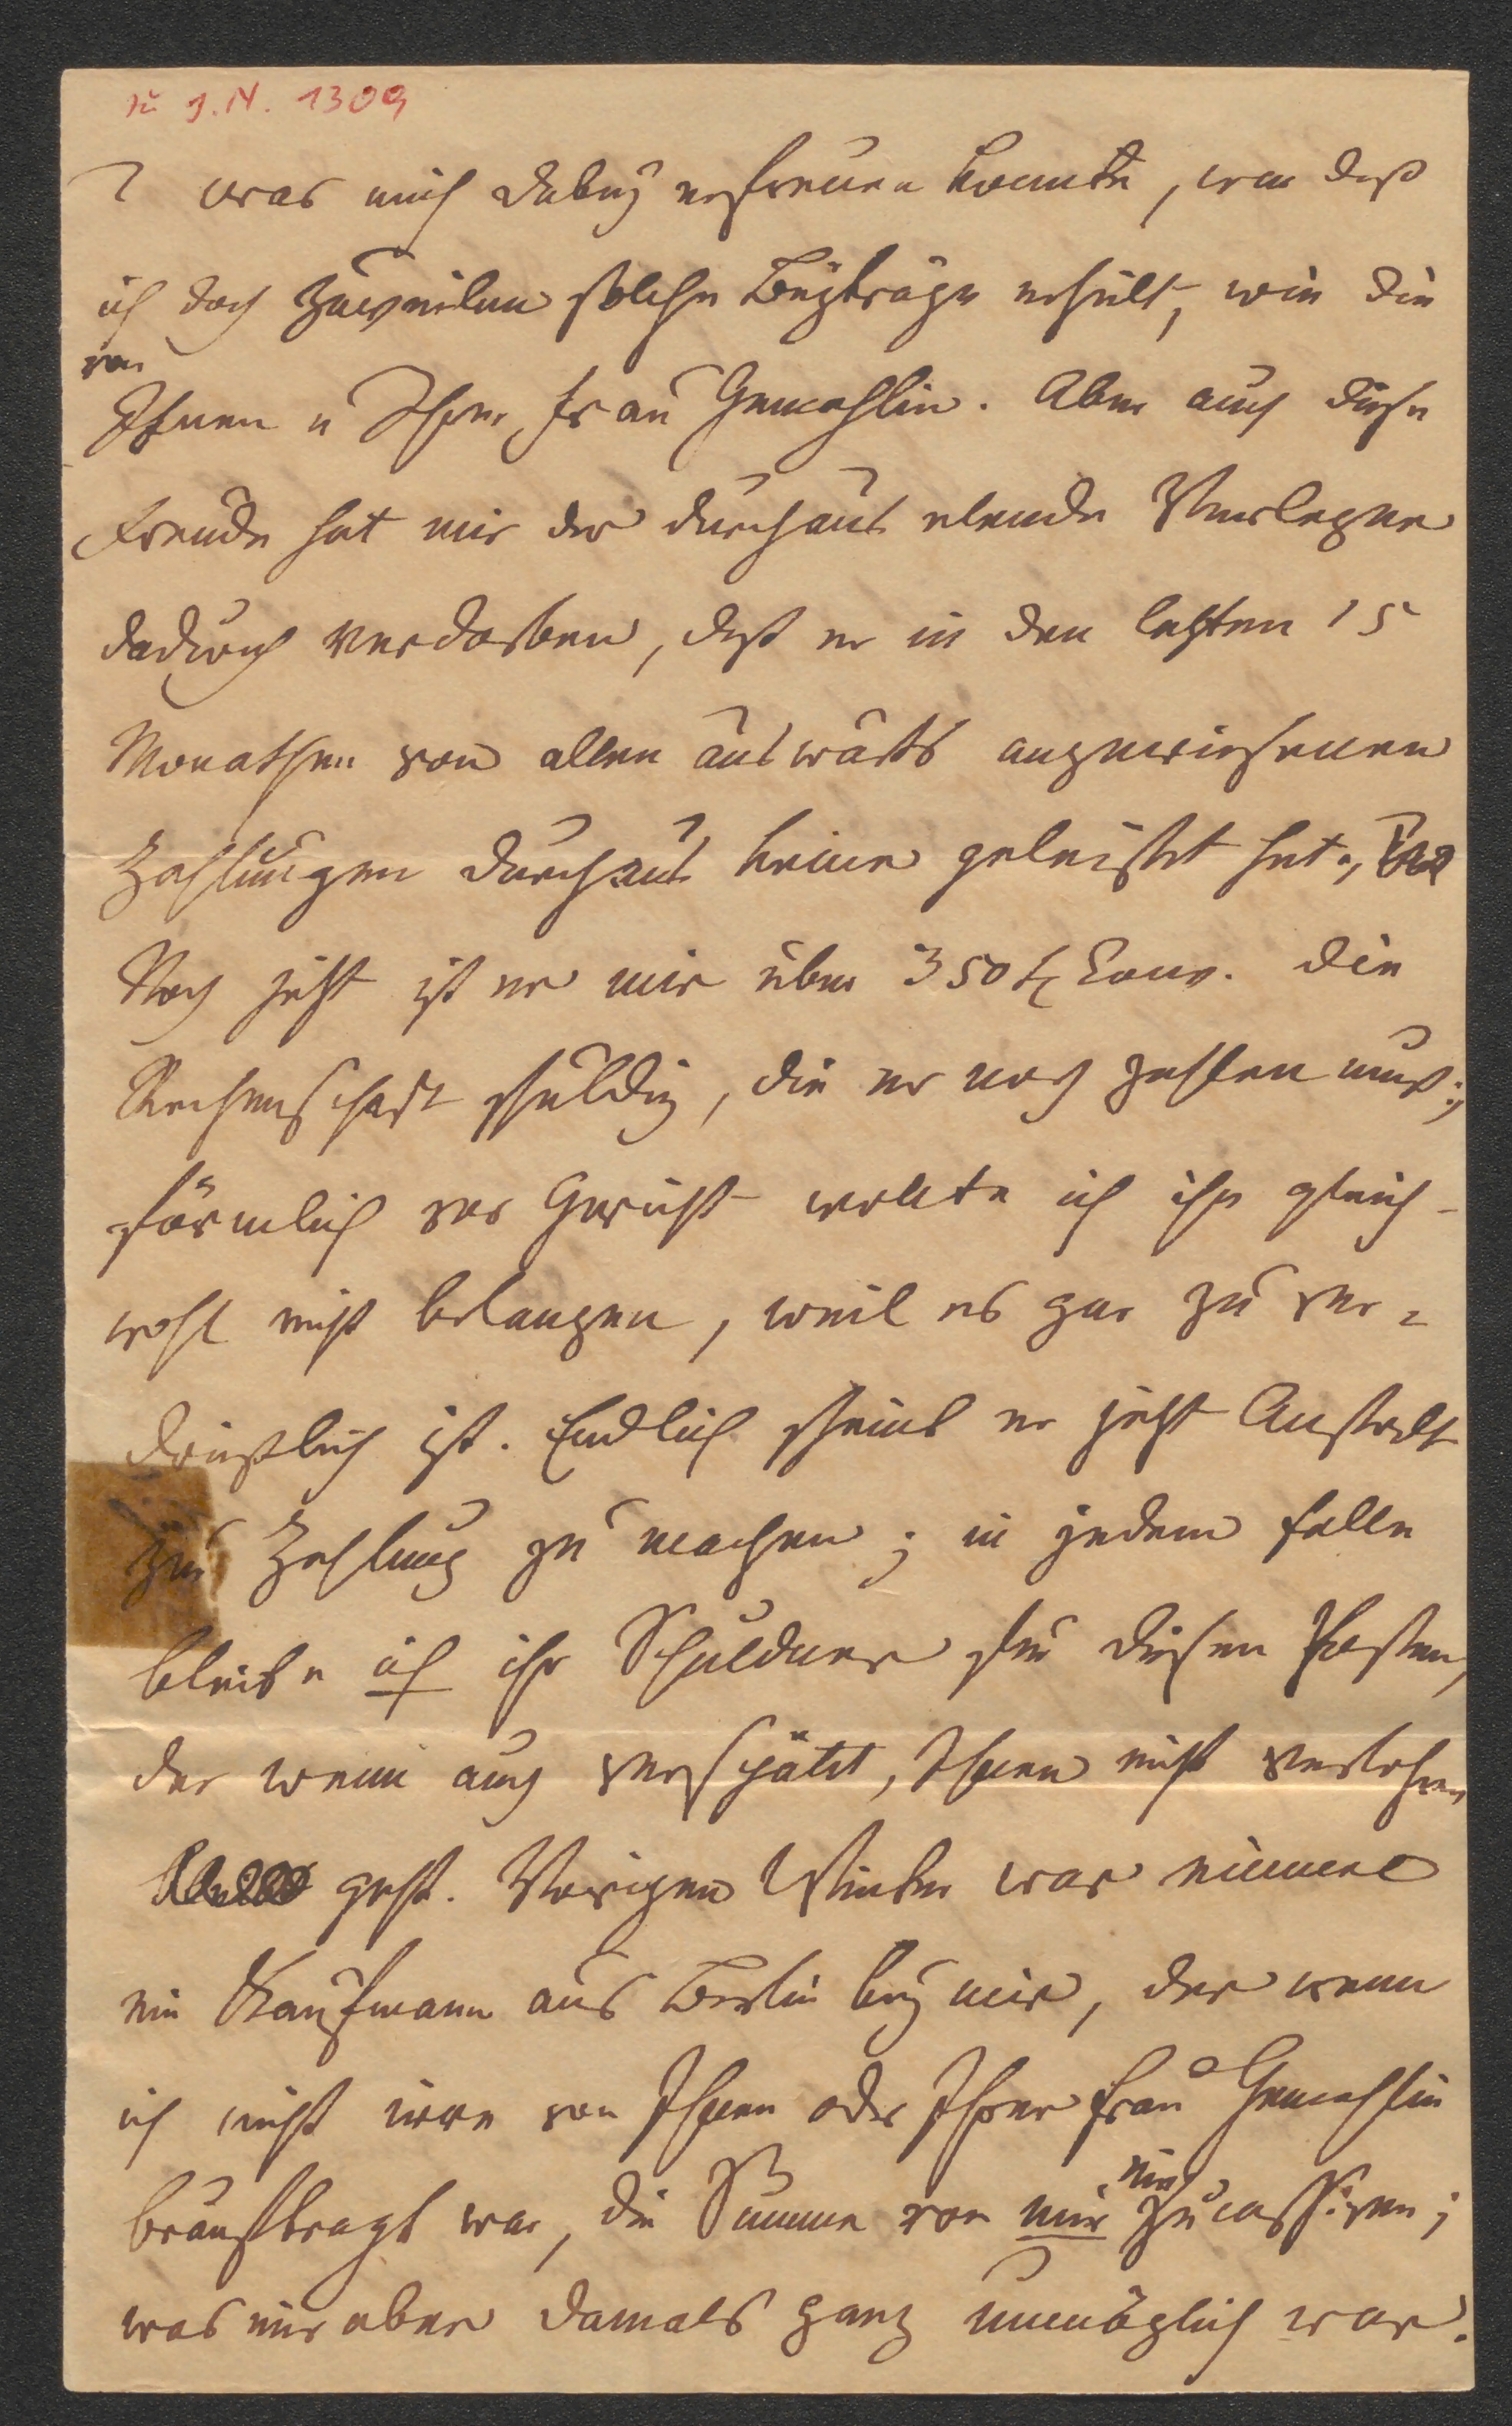 zu J.N. 1309
was mich dabey erfreuen konnte, war daß
ich doch zuweilen solche Beyträge erhielt, wie die
von
Ihnen u Ihrer Frau Gemahlin. Aber auch diese
Freude hat mir der durchaus elende Verleger
dadurch verdorben, daß er in den letzten 15
Monathen von allen auswärts angewiesenen
Zahlungen durchaus keine geleistet hat.,
Noch jetzt ist er mir über 350 Conv. die
Rechenschaft schuldig, die er noch zahlen muß;
förmlich vor Gericht wollte ich ihn gleich-
wohl nicht belangen, weil es gar zu ver-
drießlich ist. Endlich scheint er jetzt Anstalt
zur Zahlung zu machen; in jedem Falle
bleibe ich ihr Schuldner für diesen Posten,
der wenn auch verspätet, Ihnen nicht verlohren
geht. Vorigen Winter war einmal
ein Kaufmann aus Berlin bey mir, der wenn
ich nicht irre von Ihnen oder Ihrer Frau Gemahlin
beauftragt war, die Summe von mir
ein
zucassiren;
was mir aber damals ganz unmöglich war.